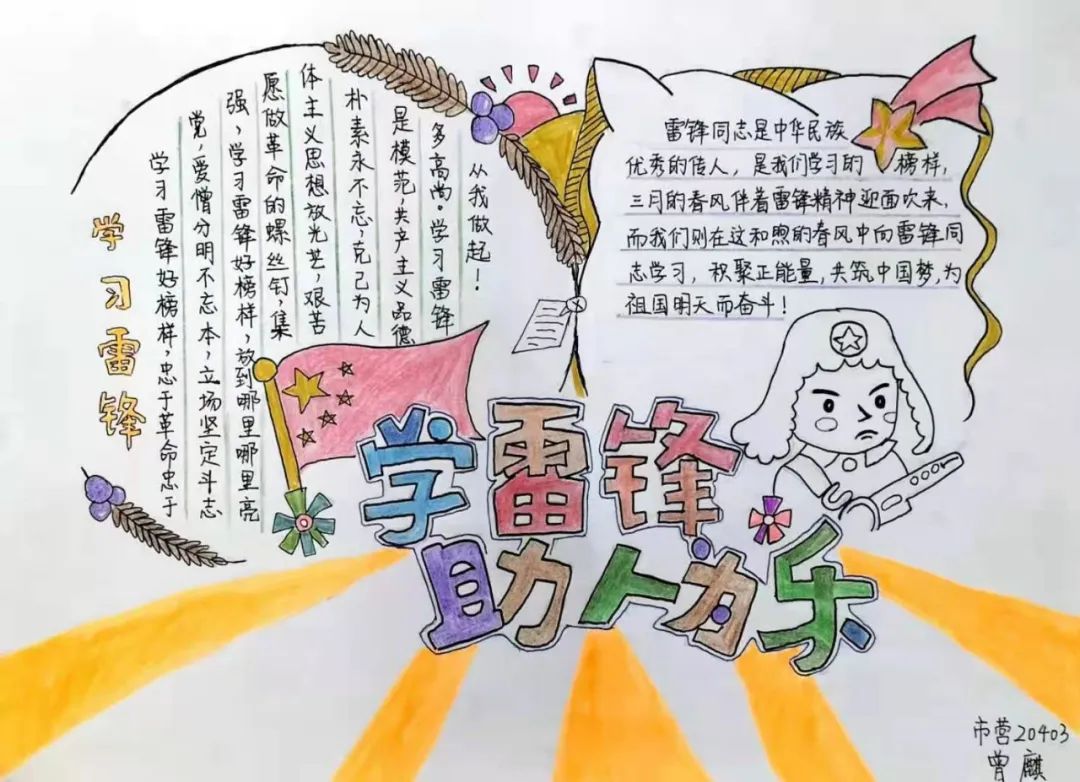 学习雷锋
学习雷锋好榜样,忠于革命忠于
党,爱僧分明不忘本,立场坚定斗志
强,学习雷锋好榜样,放到哪里哪里亮
愿做革命的螺丝钉,集
体主义思想放光芒,艰苦
朴素永不忘,克己为人
是模范,共产主义品德
多高尚。学习雷锋
从我做起!
雷锋同志是中华民族
优秀的传人,是我们学习的榜样,
三月的春风伴着雷锋精神迎面吹来,
而我们则在这和煦的春风中向雷锋同
志学习,积聚正能量,共筑中国梦,为
祖国明天而奋斗!
学雷锋
助人为乐
市营20403
曾麒